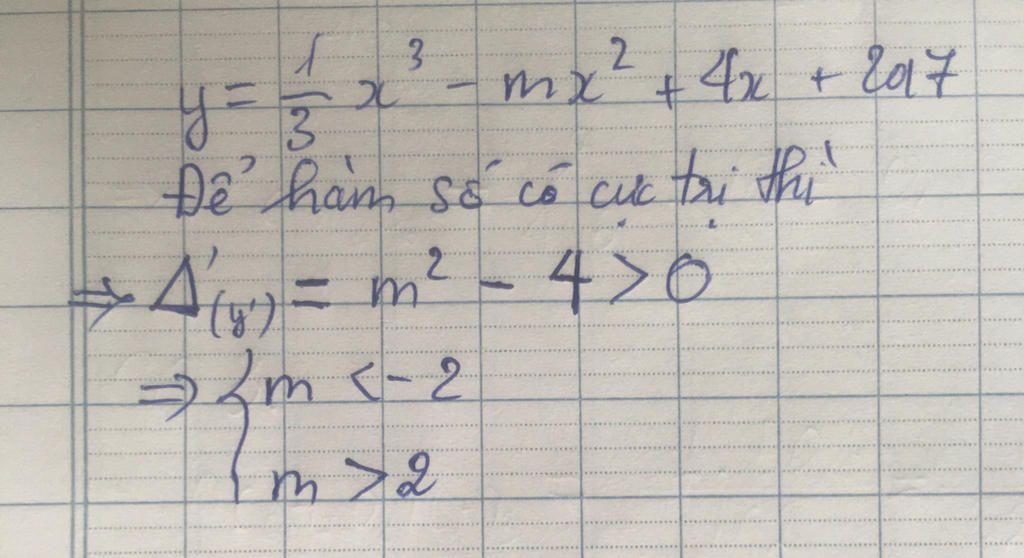 y = 1/3 x³ - mx² + 4x + 2017
Để hàm số có cực trị thì
⇒ Δ'(y') = m² - 4 > 0
⇒ { m < -2
m > 2